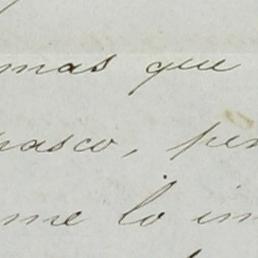 mas que
pasco, per
me lo im